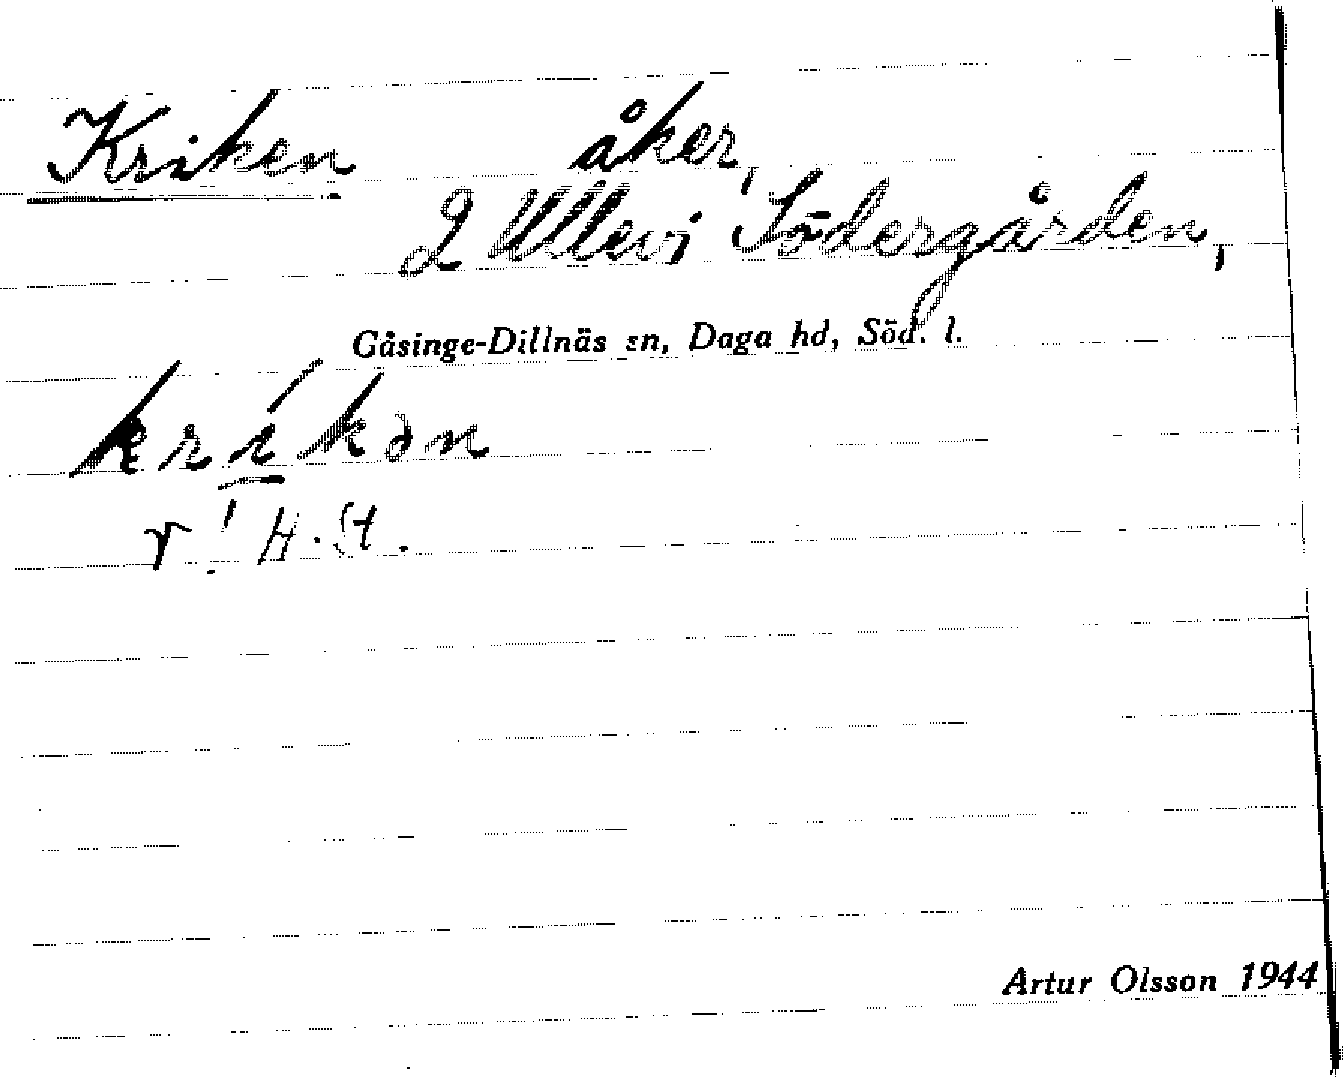 Kriken åker,
2 Ullevi Södergården,
Gåsinge-Dillnäs sn, Daga hd, Söd. l.
kríkən
r! H. St.
Artur Olsson 1944